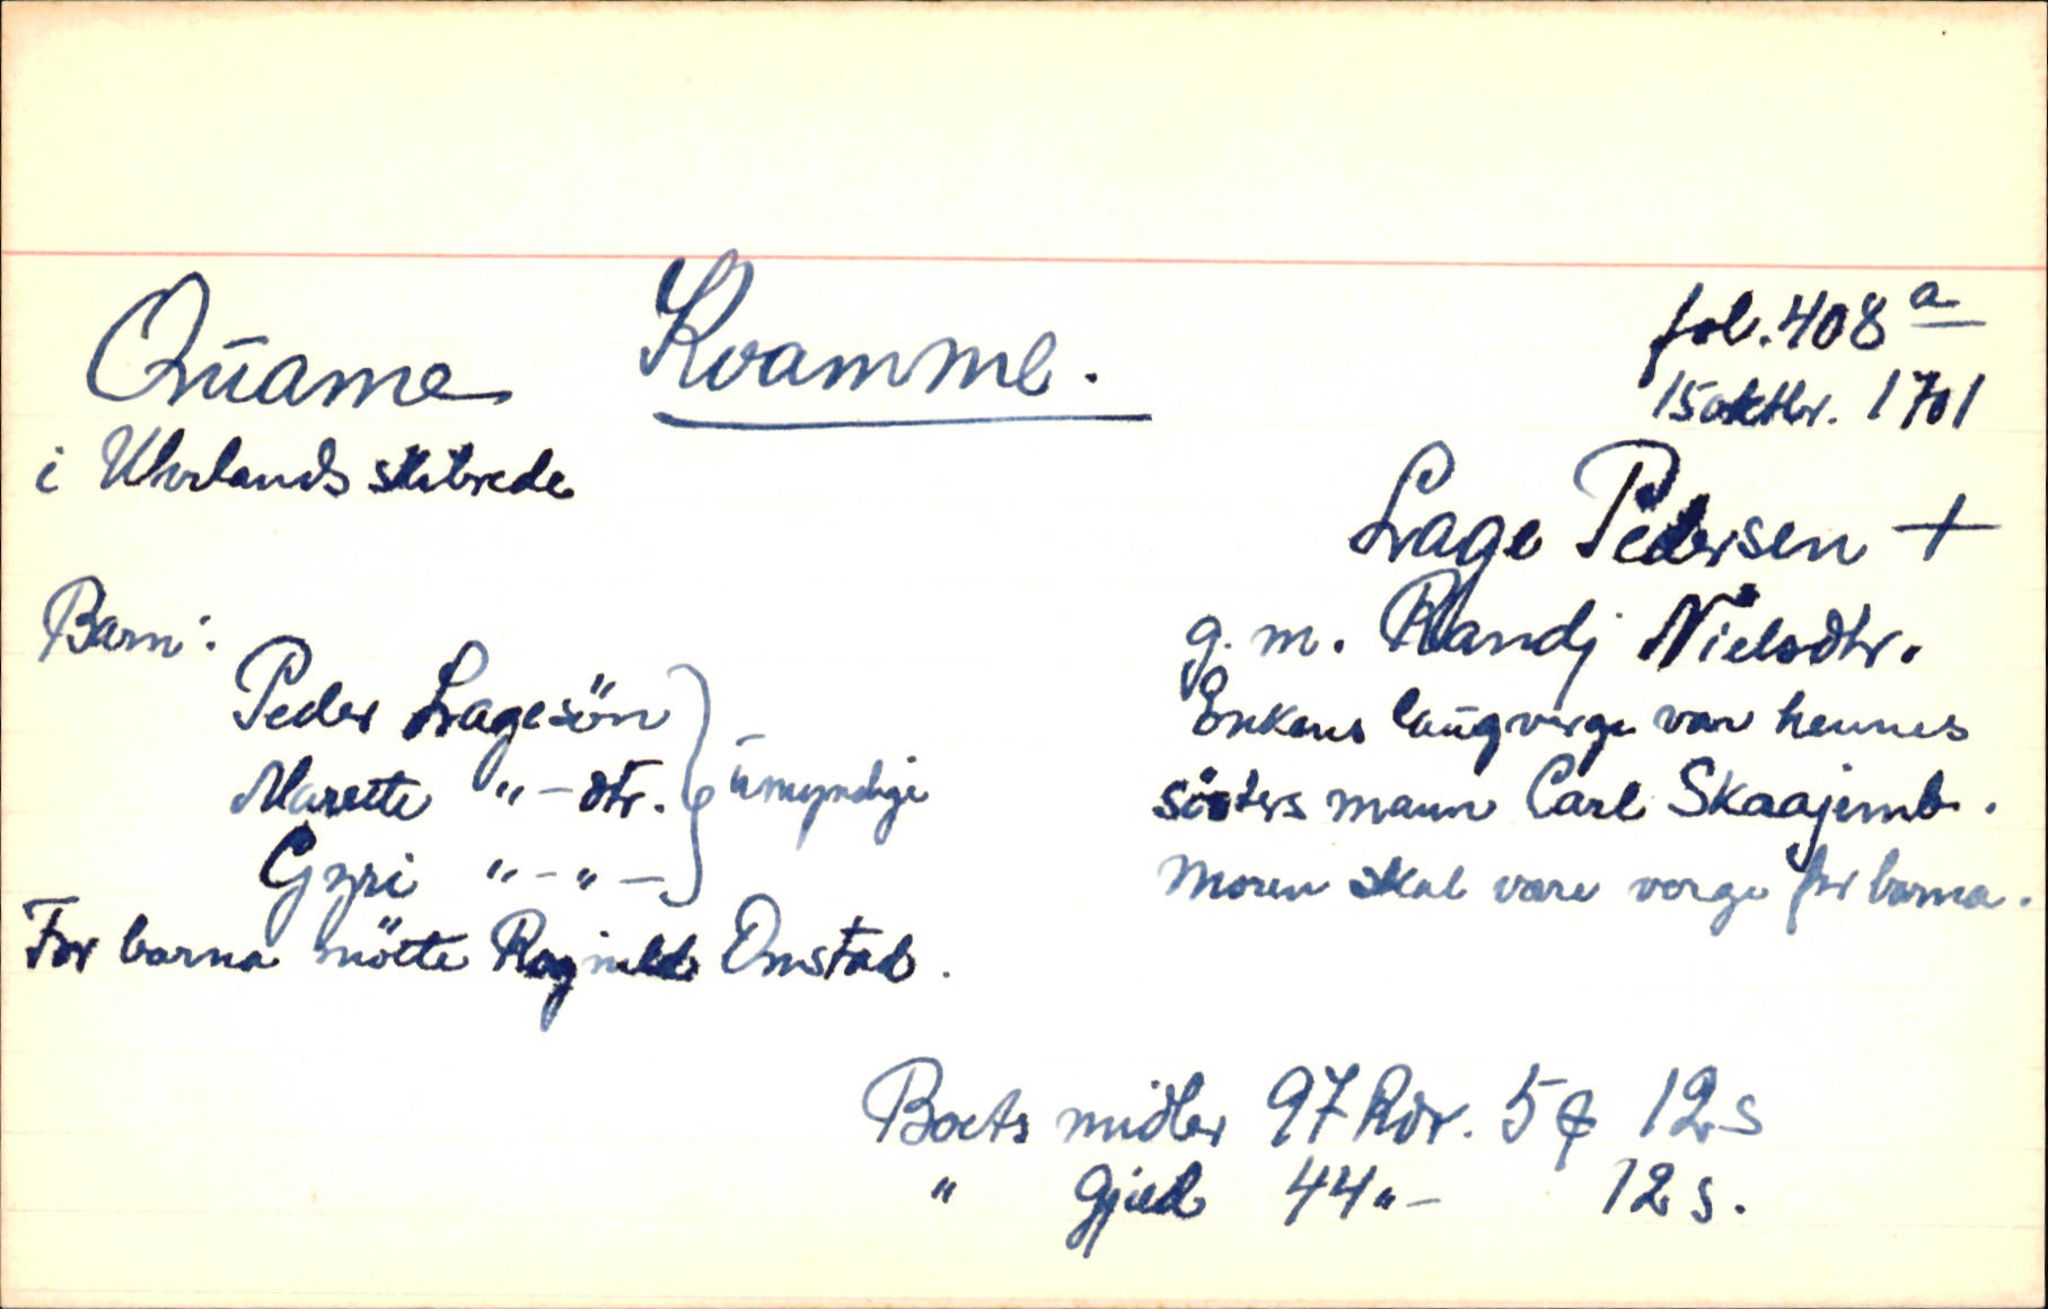 Qŭame Kvamme. fol. 408 a
15 oktbr. 1701
i Uhrlands skibrede
Lage Pedersen +
g. m. Randj Nielsdtr.
Enkens laŭgverge var hennes
sösters mann Carl Skaajemb.
Moren skal være verge for barna.
Barn:
Peder Lagesön
Marette " - dtr. } ŭmyndige
Gyri " - " -
For barna mötte Ragnild Onstad.
Boets midler 97 Rdr. 5 ₰ 12 s
" Gjeld 44 " - 12 s.